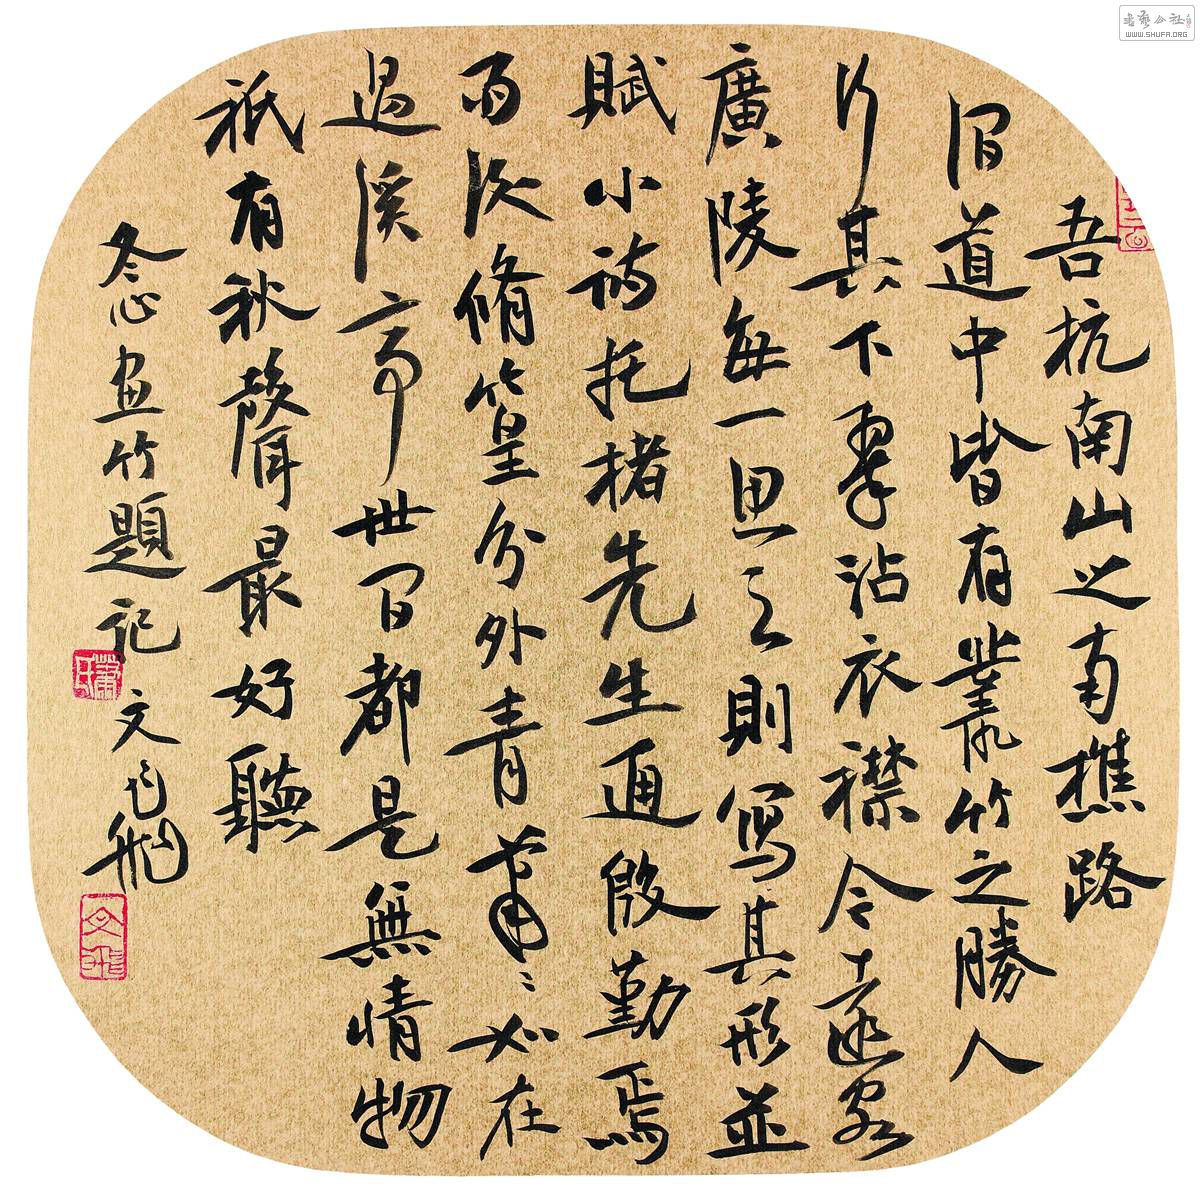 吾杭南山之南樵路
間道中皆有叢竹之勝人
行其下翠沾衣襟今遠客
廣陵每一思之則寫其形並
賦小詩托楮先生通殷勤焉
雨後脩篁分外青蕭〻如在
過溪亭世間都是無情物
祇有秋聲最好聽
冬心畫竹題記 文飛
蕭氏
文飛
书艺公社
WWW.SHUFA.ORG